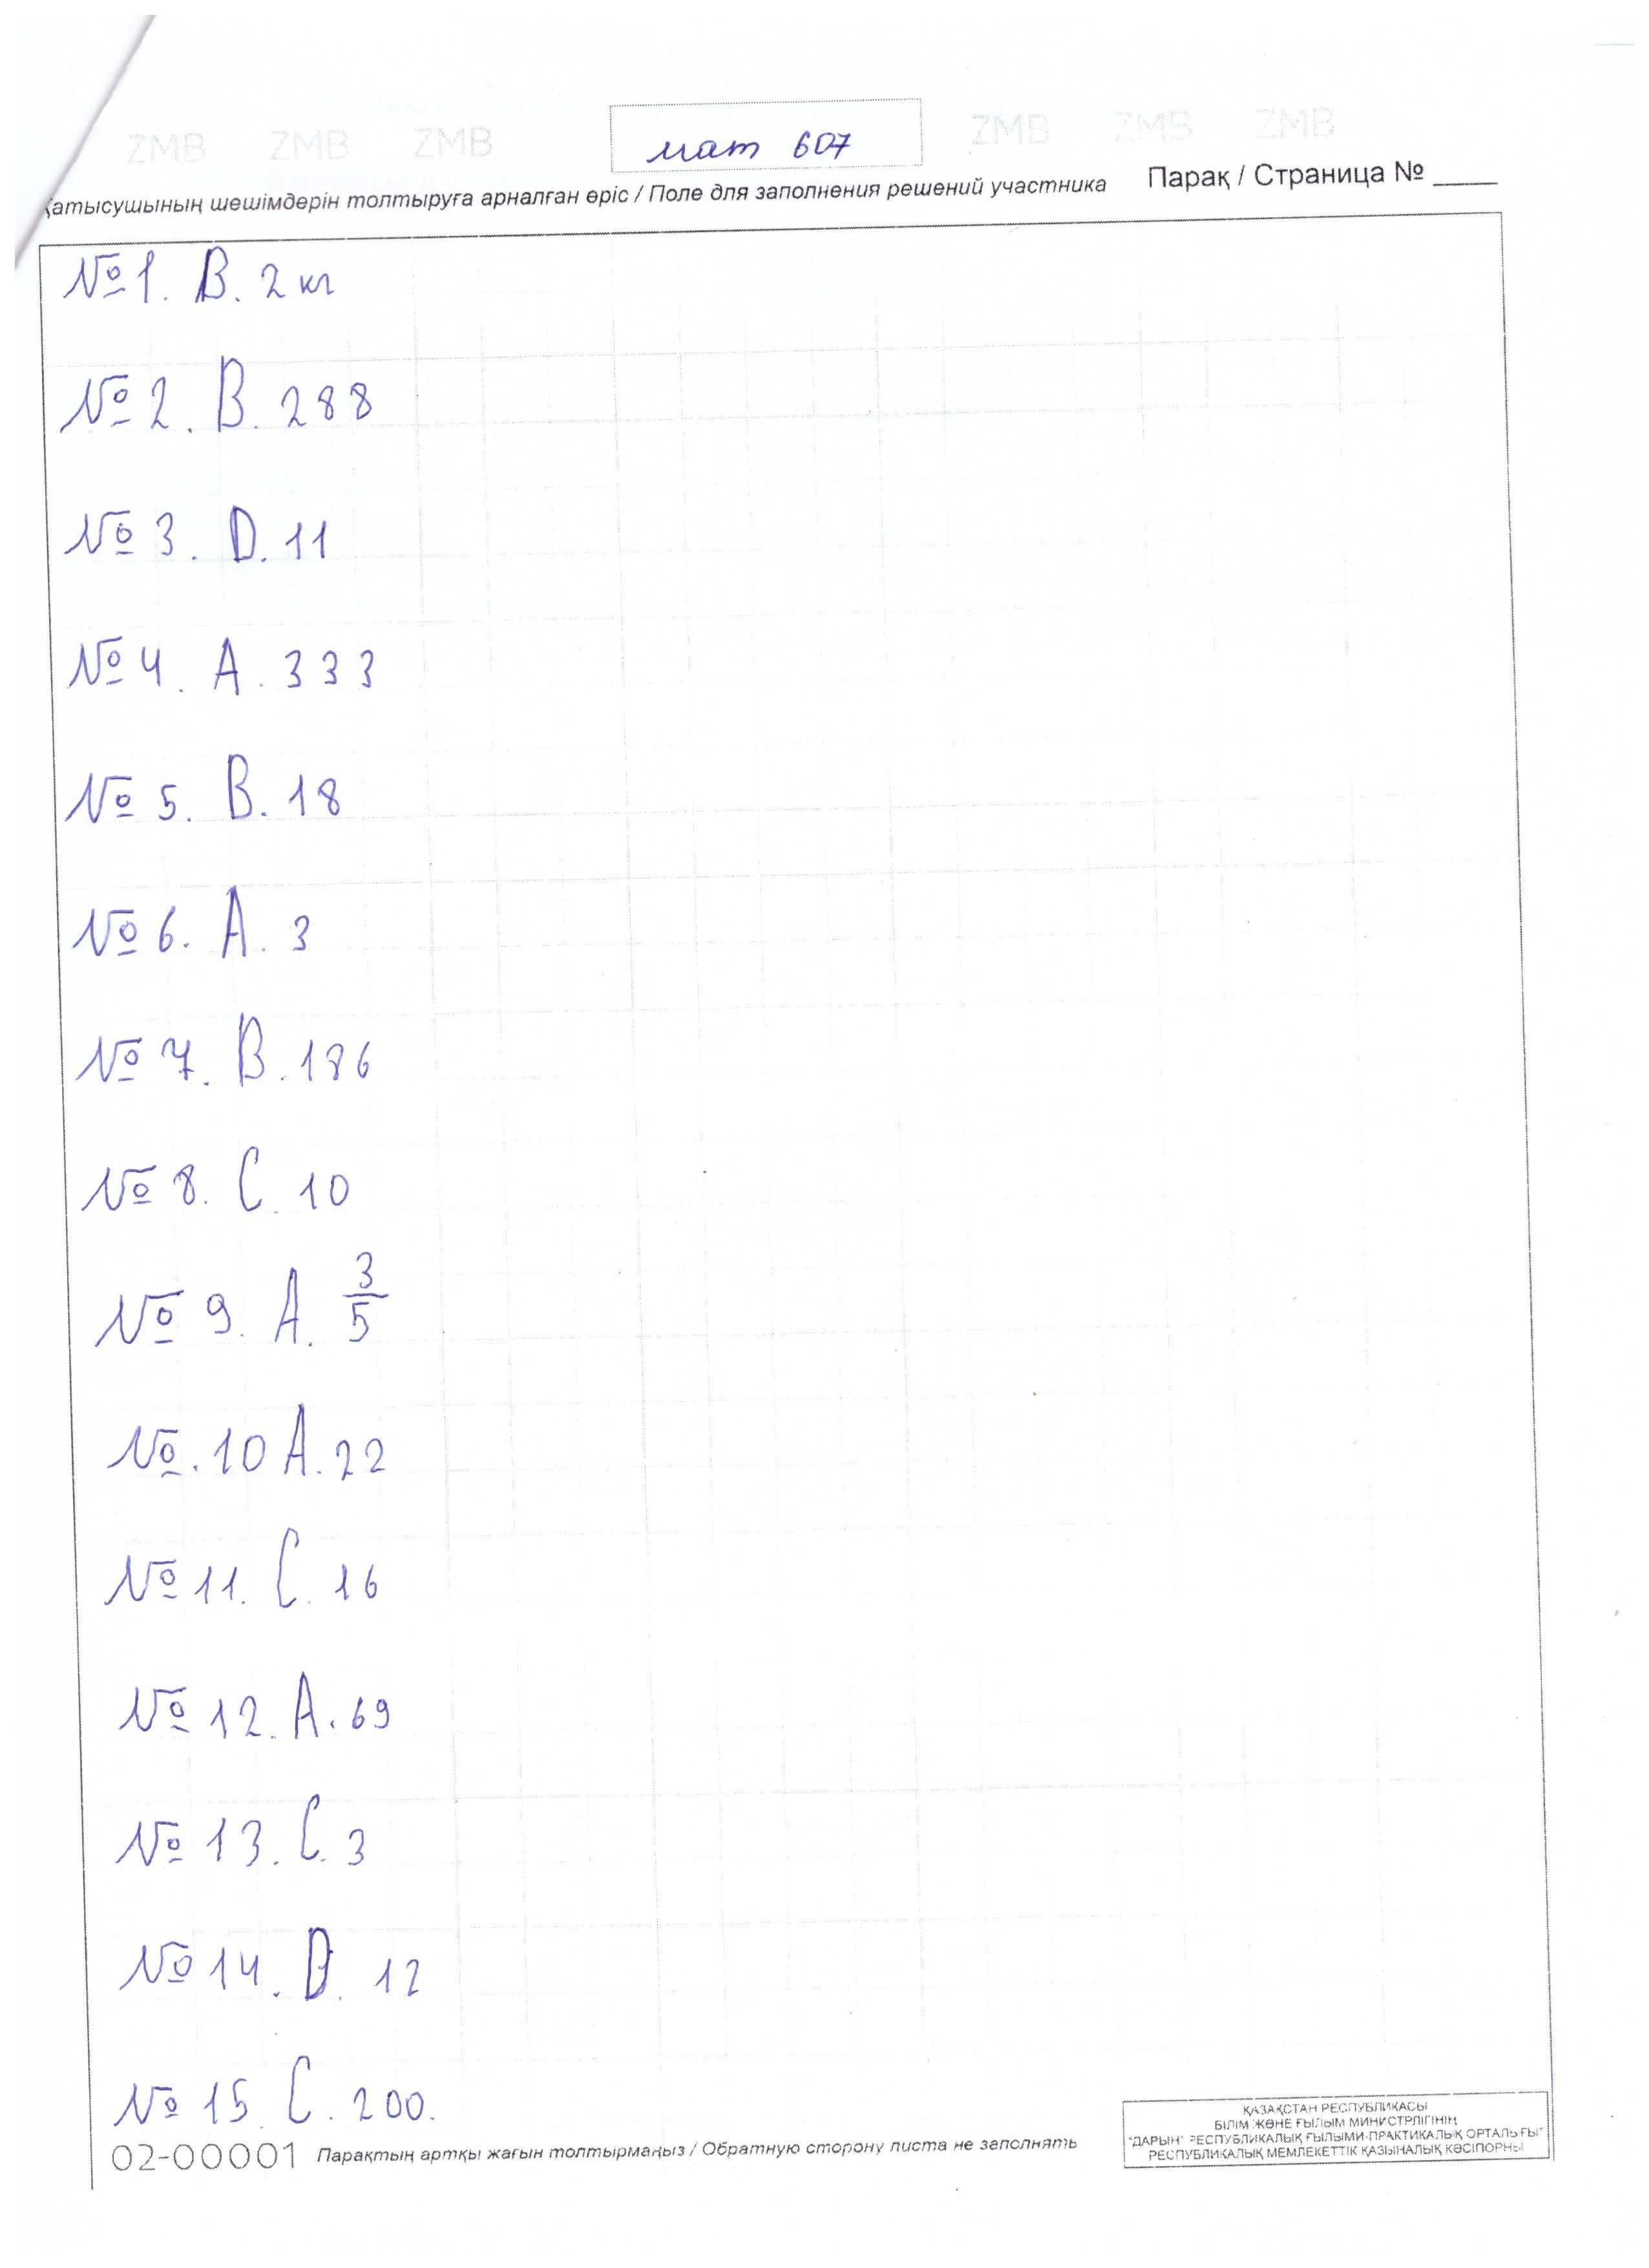 ZMB ZMB ZMB мат 607 ZMB ZMB ZMB
Қатысушының шешімдерін толтыруға арналған өріс / Поле для заполнения решений участника Парақ / Страница № ____
№1. B. 2 кг
№ 2. B. 288
№ 3. D. 11
№ 4. A. 333
№ 5. B. 18
№ 6. A. 3
№ 7. B. 186
№ 8. C. 10
№ 9. A. 3/5
№. 10 A. 22
№ 11. C. 16
№ 12. A. 69
№ 13. C. 3
№ 14. D. 12
№ 15. C. 200.
02-00001 Парақтың артқы жағын толтырмаңыз / Обратную сторону листа не заполнять
ҚАЗАҚСТАН РЕСПУБЛИКАСЫ
БІЛІМ ЖӘНЕ ҒЫЛЫМ МИНИСТРЛІГІНІҢ
"ДАРЫН" РЕСПУБЛИКАЛЫҚ ҒЫЛЫМИ-ПРАКТИКАЛЫҚ ОРТАЛЫҒЫ"
РЕСПУБЛИКАЛЫҚ МЕМЛЕКЕТТІК ҚАЗЫНАЛЫҚ КӘСІПОРНЫ